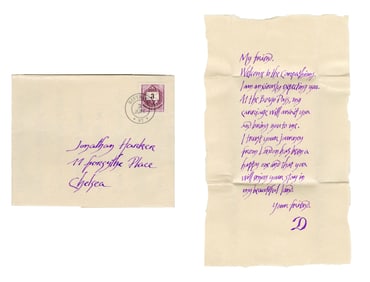 3
Jonathan Harker
11 Forsythe Place
Chelsea
My friend.
Welcome to the Carpathians.
I am anxiously expecting you.
At the Borgo Pass, my
carriage will await you
and bring you to me.
I trust your journey
from London has been a
happy one and that you
will enjoy your stay in
my beautiful land.
Your friend.
D